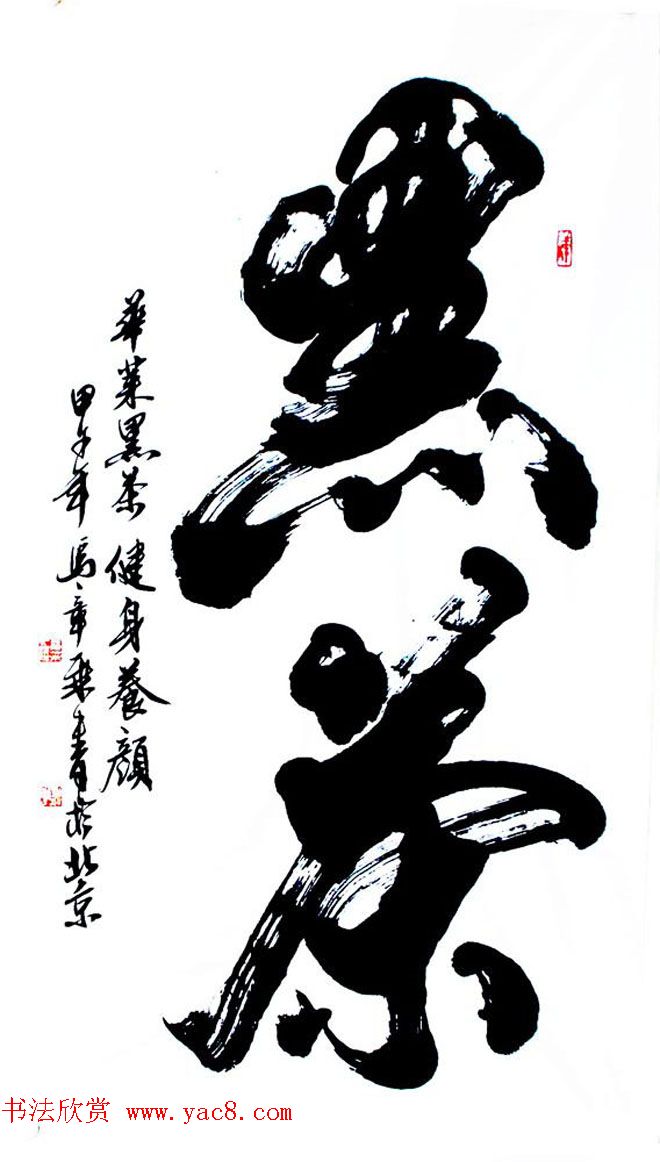 黑茶
華萊黑茶 健身養顏
甲午年 馬章乘書於北京
书法欣赏 www.yac8.com